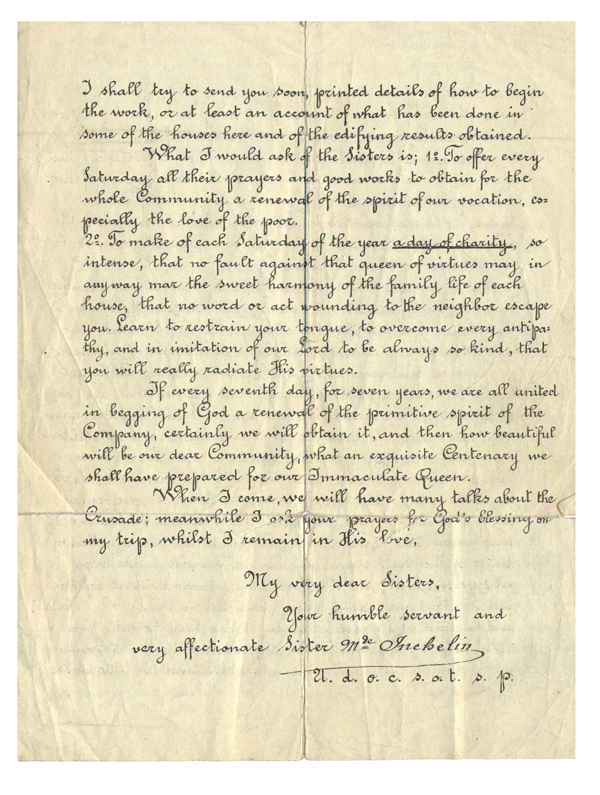 I shall try to send you soon, printed details of how to begin
the work, or at least an account of what has been done in
some of the houses here and of the edifying results obtained.
What I would ask of the Sisters is; 1º. To offer every
Saturday all their prayers and good works to obtain for the
whole Community a renewal of the spirit of our vocation, es=
pecially the love of the poor.
2º. To make of each Saturday of the year a day of charity, so
intense, that no fault against that queen of virtues may in
anyway mar the sweet harmony of the family life of each
house, that no word or act wounding to the neighbor escape
you. Learn to restrain your tongue, to overcome every antipa=
thy, and in imitation of our Lord to be always so kind, that
you will really radiate His virtues.
If every seventh day, for seven years, we are all united
in begging of God a renewal of the primitive spirit of the
Company, certainly we will obtain it, and then how beautiful
will be our dear Community, what an exquisite Centenary we
shall have prepared for our Immaculate Queen.
When I come, we will have many talks about the
Crusade; meanwhile I ask your prayers for God's blessing on
my trip, whilst I remain in His love,
My very dear Sisters,
Your humble servant and
very affectionate Sister Mde Inchelin
U. d. o. c. s. o. t. s. p.